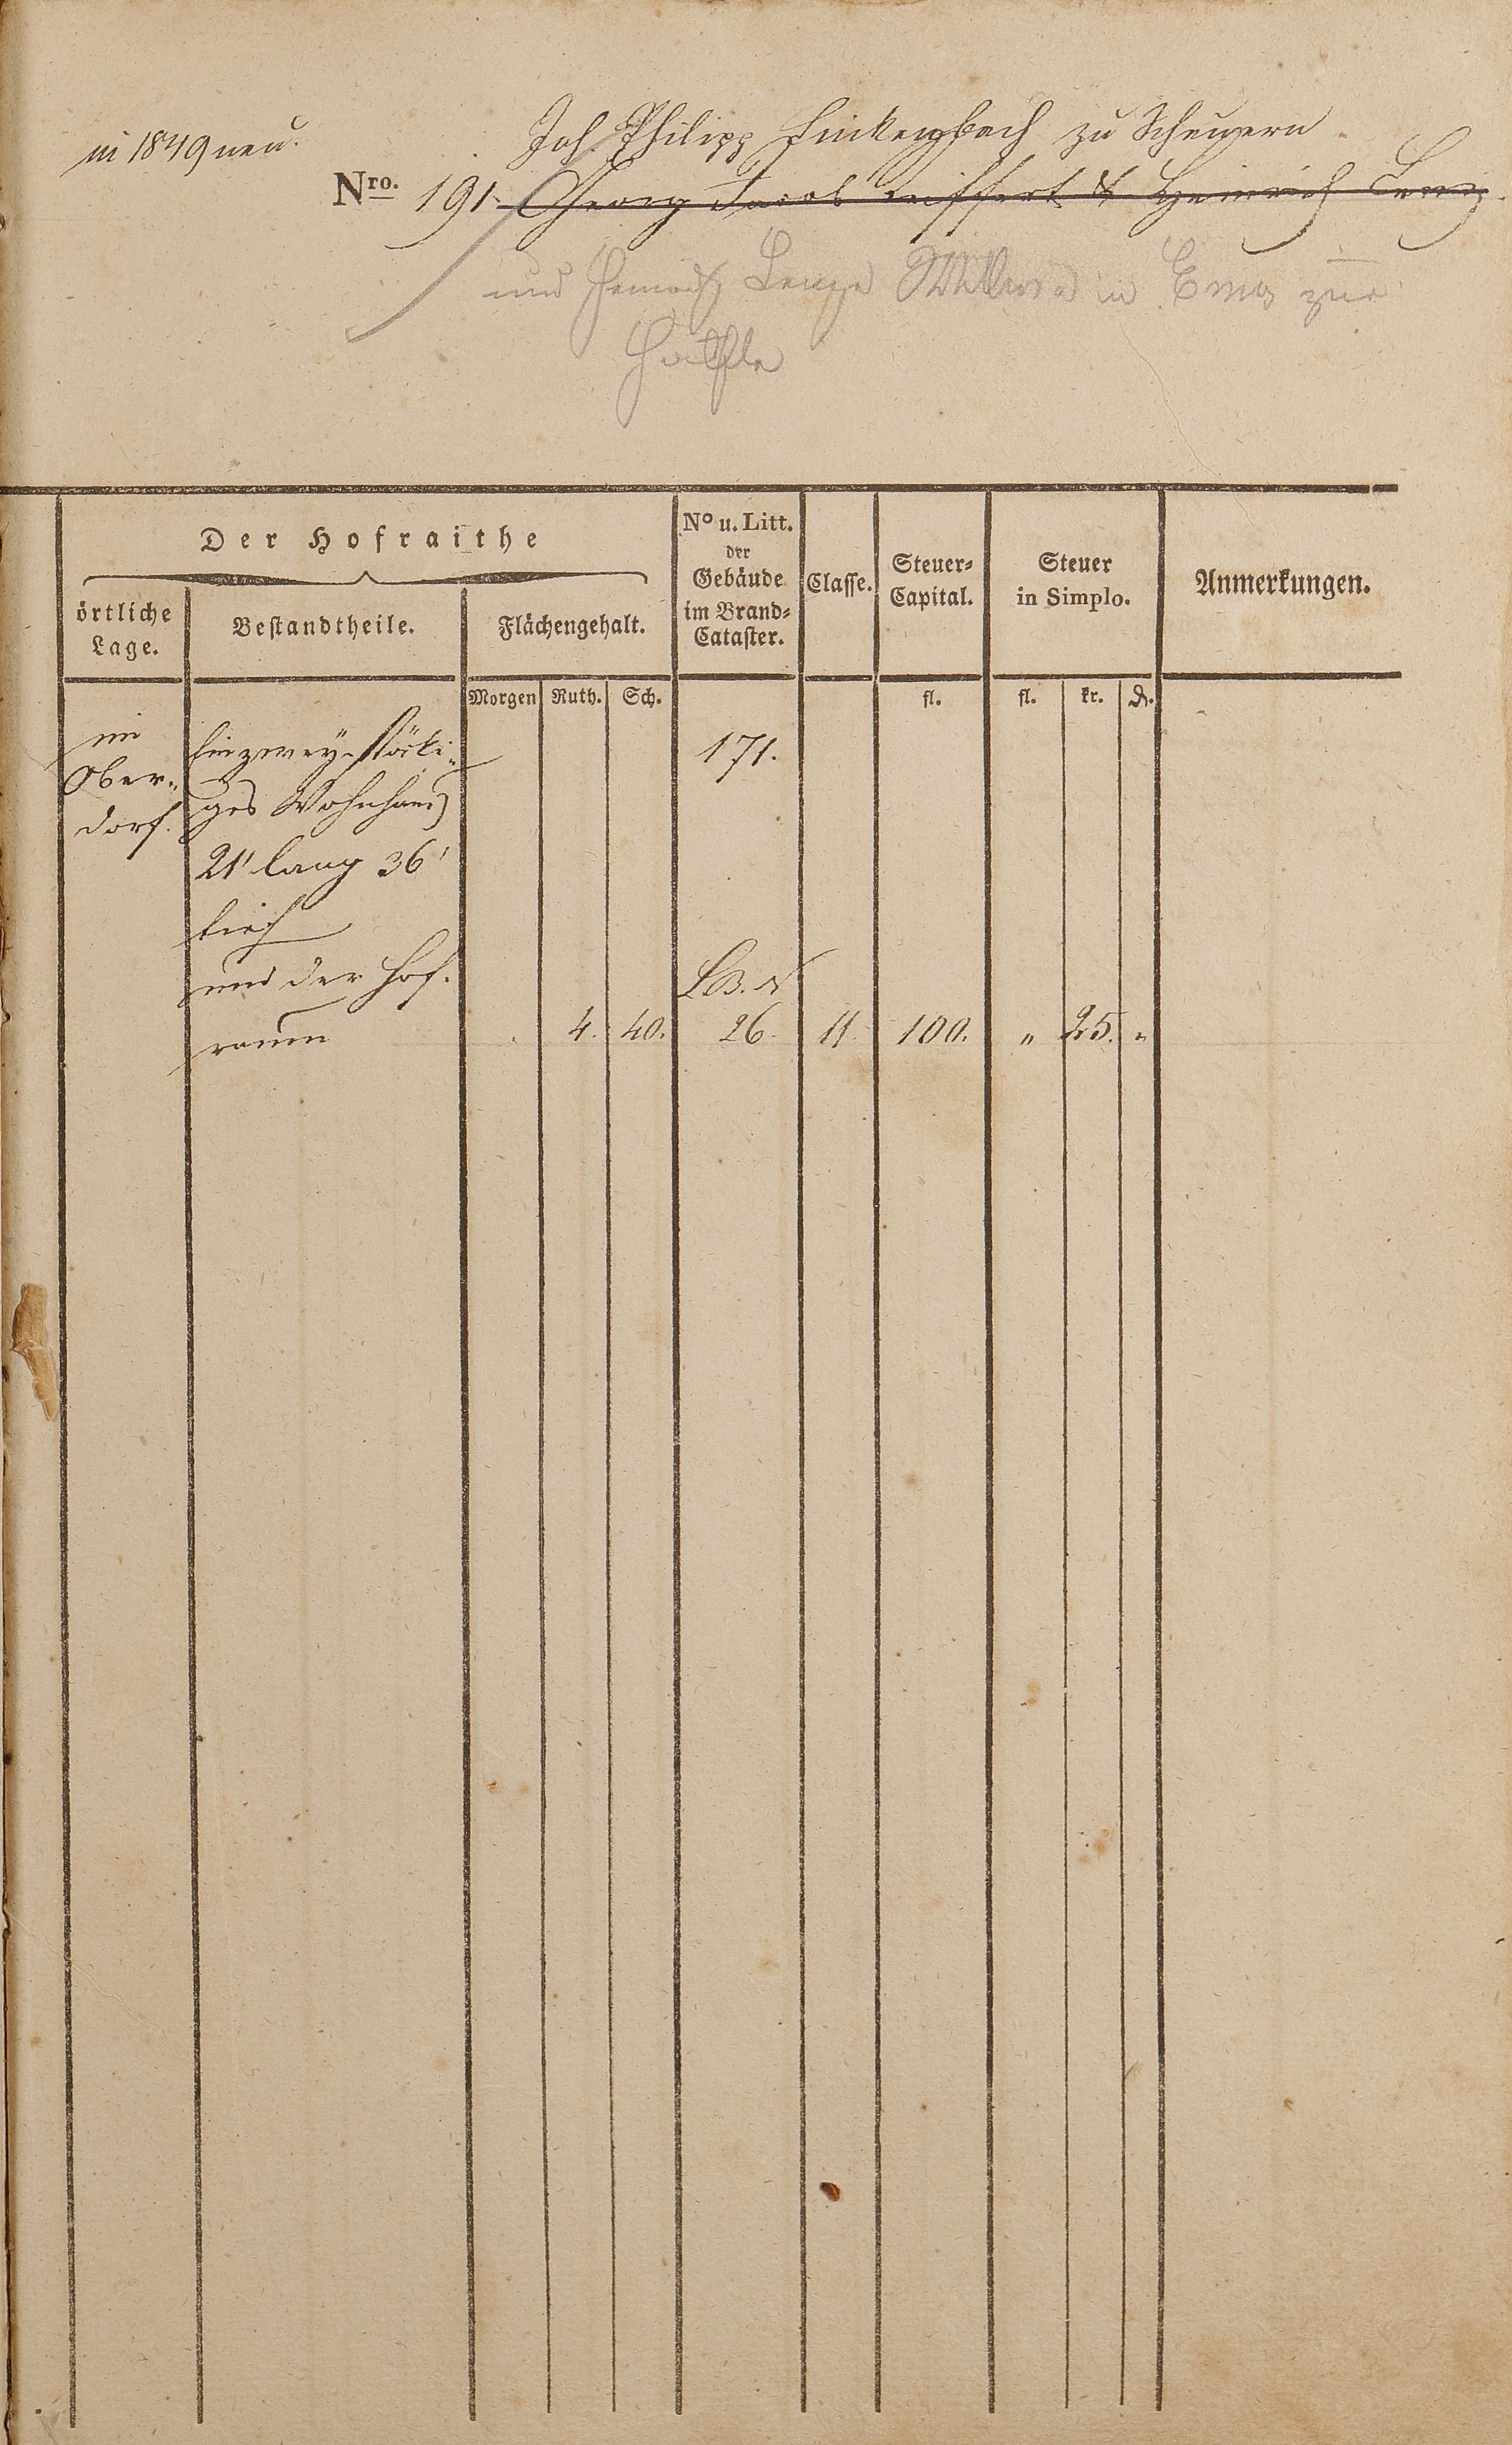 in 1849 neu.
Joh. Philipp Linkenbach zu Scheuern
Nro. 191. Georg Jacob Seiffert & Heinrich Lenz.
und Heinrich in Ems zur
Hälfte
Der Hofraithe
örtliche Lage.
Bestandtheile.
Flächengehalt.
No u. Litt. der Gebäude im Brand-Cataster.
Classe.
Steuer-Capital.
Steuer in Simplo.
Anmerkungen.
Morgen Ruth. Sch. fl. fl. kr. ₰.
im
Ober-
dorf.
Ein zwey-stöcki-
ges Wohnhaus
21' lang 36'
tief
und der Hof-
raum
171.
4. 40. 26. 11. 100. " 25. "